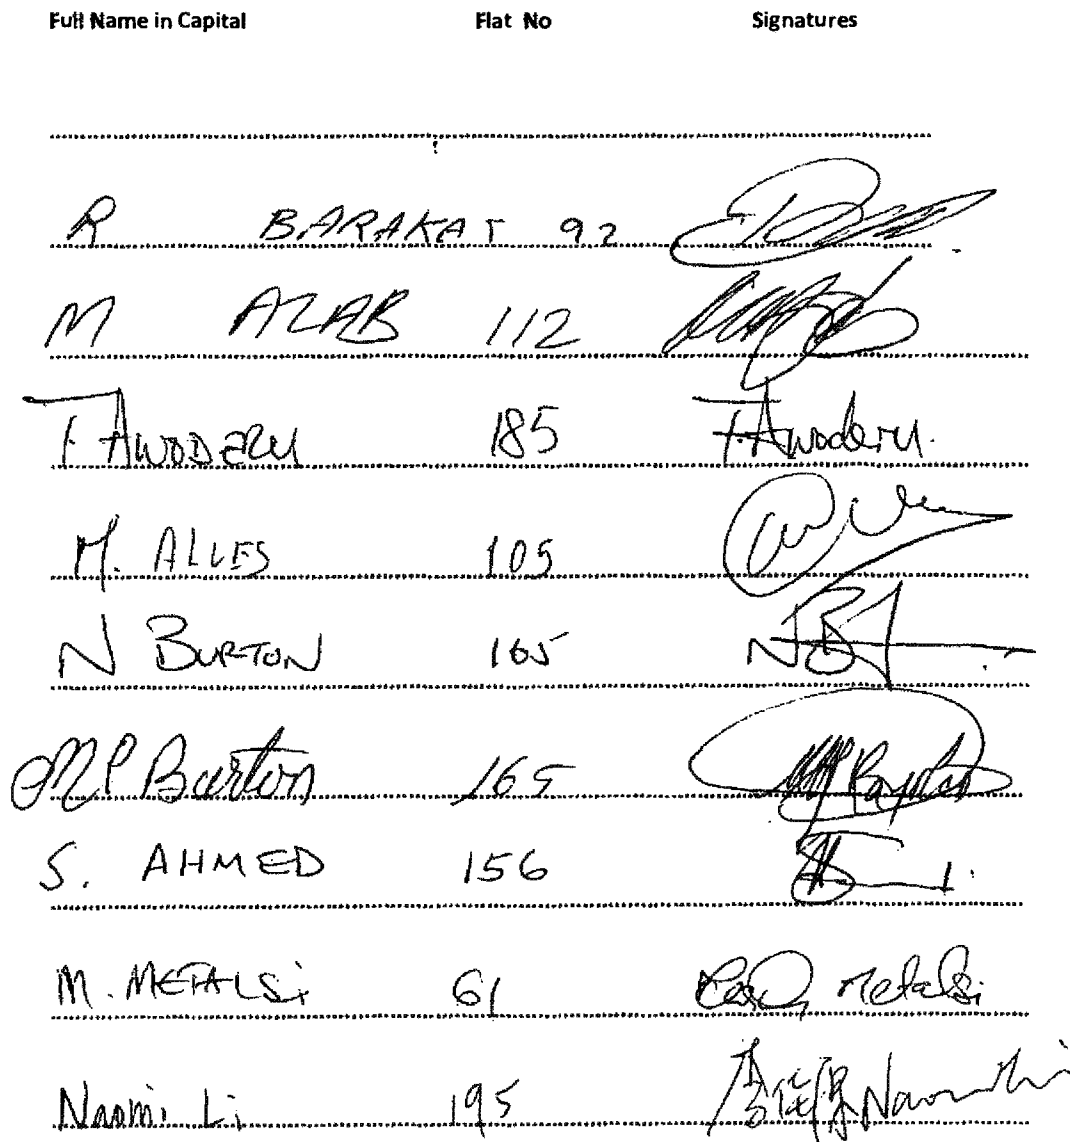 Full Name in Capital Flat No Signatures
R BARAKAT 92
M AZAB 112
T. AWODERU 185 T. Awoderu.
M. ALLES 105
N BURTON 165 NB
MP Burton 165 MP Burton
S. AHMED 156
M. METALSi 61 Metalsi
Naomi Li 195 李 Naomi Li